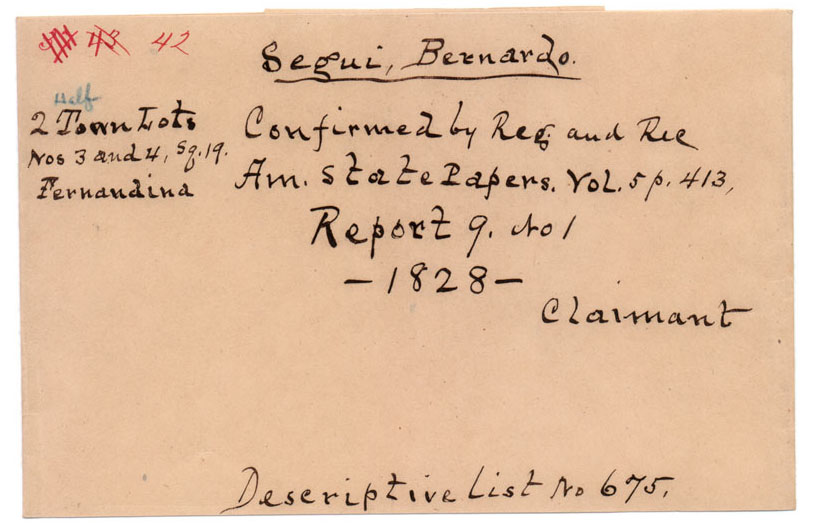 43 42
Segui, Bernardo.
Half
2 Town Lots
Nos 3 and 4, Sq. 19.
Fernandina
Confirmed by Reg. and Rec
Am. State Papers. Vol. 5 p. 413,
Report 9. No 1
- 1828 -
Claimant
Descriptive List No 675.